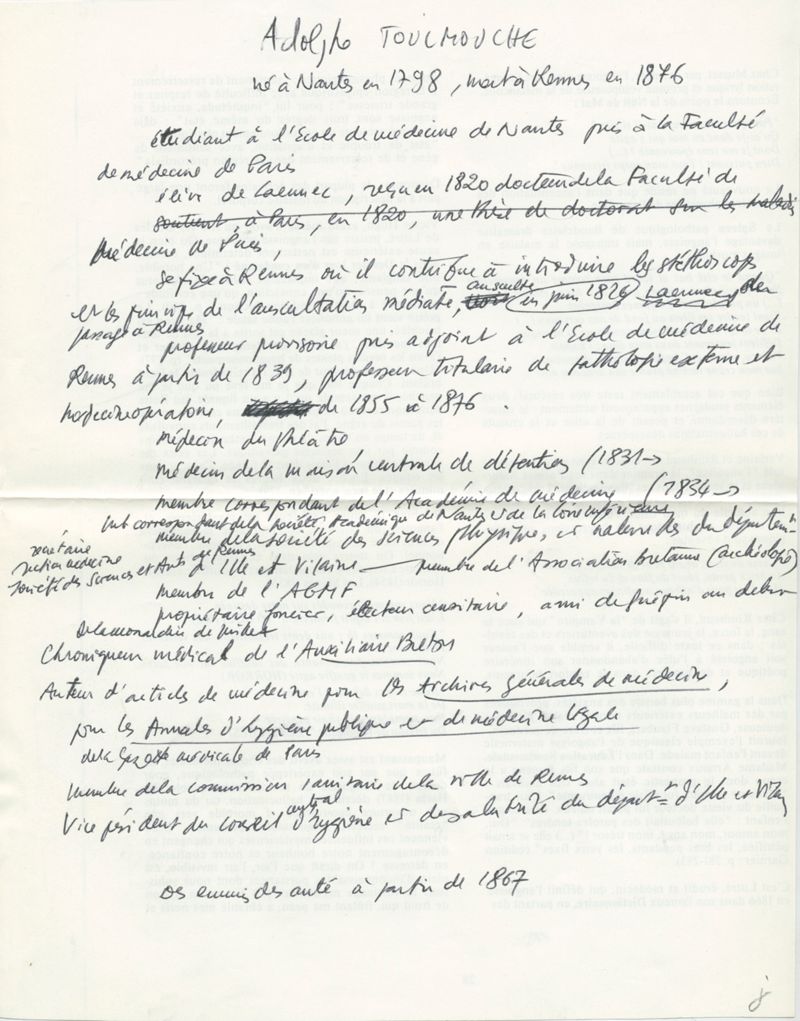 Adolphe TOULMOUCHE
né à Nantes en 1798, mort à Rennes en 1876
étudiant à l'Ecole de médecine de Nantes puis à la Faculté
de médecine de Paris
élève de Laennec, reçu en 1820 docteur de la Faculté de
soutient, à Paris, en 1820, une thèse de doctorat sur les maladies
Médecine de Paris,
se fixe à Rennes où il contribue à introduire le stéthoscope
et les principes de l'auscultation médiate, ausculte en juin 1826 Laennec de
passage à Rennes
professeur provisoire puis adjoint à l'Ecole de médecine de
Rennes à partir de 1839, professeur titulaire de pathologie externe et
médecine opératoire, de 1855 à 1876.
médecin du théâtre
médecin de la maison centrale de détention (1831→
membre correspondant de l'Académie de médecine (1834→
mbt correspondant de la Société Académique de Nantes et de la Loire inférieure
membre de la société des sciences physiques, et naturelles du département
secrétaire
section médecine
société des Sciences et Arts de Rennes
d'Ille et Vilaine — membre de l'Association bretonne (archéologie)
membre de l'AGMF
propriétaire foncier, électeur censitaire, ami de Guépin au début
de la monarchie de Juillet
Chroniqueur médical de l'Auxiliaire Breton
Auteur d'articles de médecine pour les Archives générales de médecine,
pour les Annales d'hygiène publique et de médecine légale
de la Gazette médicale de Paris
membre de la commission sanitaire de la ville de Rennes
Vice président du conseil central d'hygiène et de salubrité du départ=nt d'Ille et Vilaine
des ennuis de santé à partir de 1867